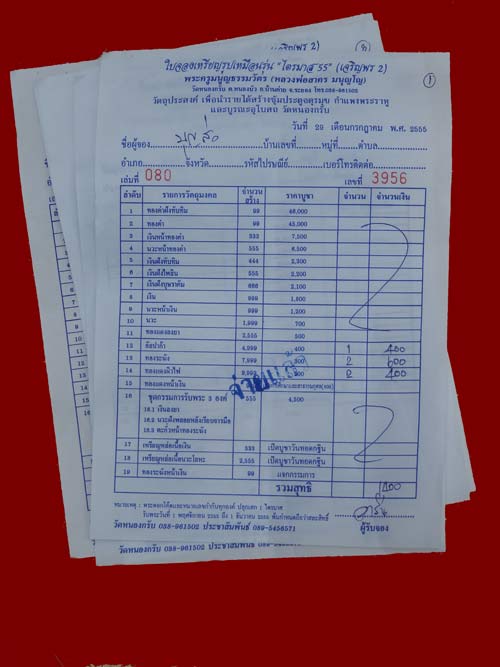 เจริญพร 2)
ใบจองเหรียญรูปเหมือนรุ่น "ไตรมาส 55" (เจริญพร 2)
พระครูมนูญธรรมวัตร (หลวงพ่อสาคร มนุญโญ)
วัดหนองกรับ ต.หนองบัว อ.บ้านค่าย จ.ระยอง โทร.038-961502
วัตถุประสงค์ เพื่อนำรายได้สร้างซุ้มประตูจตุรมุข กำแพงพระราหู
และบูรณะอุโบสถ วัดหนองกรับ
วันที่ 29 เดือนกรกฎาคม พ.ศ. 2555
ชื่อผู้จอง บ้านเลขที่ หมู่ที่ ตำบล
อำเภอ จังหวัด รหัสไปรษณีย์ เบอร์โทรติดต่อ
เล่มที่ 080 เลขที่ 3956
ลำดับ รายการวัตถุมงคล จำนวนสร้าง ราคาบูชา จำนวน จำนวนเงิน
1 ทองคำฝังทับทิม 99 48,000
2 ทองคำ 99 45,000
3 เงินหน้าทองคำ 333 7,500
4 นวะหน้าทองคำ 555 6,500
5 เงินฝังทับทิม 444 2,300
6 เงินฝังไพลิน 555 2,200
7 เงินฝังบุษราคัม 666 2,100
8 เงิน 999 1,800
9 นวะหน้าเงิน 999 1,200
10 นวะ 1,999 700
11 ทองแดงลงยา 2,555 500
12 อัลปาก้า 4,999 400 1 400
13 ทองระฆัง 7,999 300 2 600
14 ทองแดงผิวไฟ 9,999 200 2 400
จ่ายแล้ว
15 ทองแดงหน้าเงิน
16 ชุดกรรมการรับพระ 3 องค์ 555 4,500
16.1 เงินลงยา
16.2 นวะฝังพลอยหลังเรียบจารมือ
16.3 ตะกั่วหน้าทองระฆัง
17 เหรียญหล่อเนื้อเงิน 533 เปิดบูชาวันทอดกฐิน
18 เหรียญหล่อเนื้อนวะโลหะ 2,555 เปิดบูชาวันทอดกฐิน
19 ทองระฆังหน้าเงิน 99 แจกกรรมการ
รวมสุทธิ 1400
หมายเหตุ : พระตอกโค๊ดและหมายเลขกำกับทุกองค์ ปลุกเสก 1 ไตรมาส
รับพระวันที่ 1 พฤศจิกายน 2555 ถึง 1 ธันวาคม 2555 พ้นกำหนดถือว่าสละสิทธิ์
วัดหนองกรับ 038-961502 ประชาสัมพันธ์ 089-5456571
ผู้รับจอง
วัดหนองกรับ 038-961502 ประชาสัมพันธ์